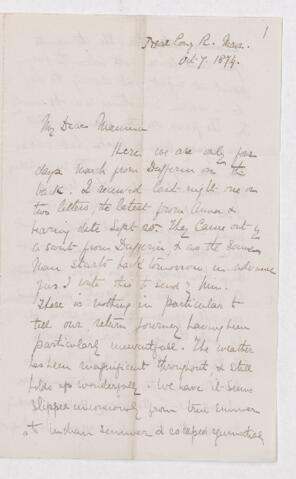 1
Oct. 7. 1874.
My Dear Mamma
Here we are only five
days march from Dufferin on the
back. I received last night one or
two letters, the latest from Anna &
having date Sept 20. They came out by
a scout from Dufferin, & as the same
man starts back tomorrow in advance
I write this to send
There is nothing in particular to
tell our return journey having been
particularly uneventful. The weather
has been magnificent throughout & still
holds up wonderfully. We have it seems
slipped unconsciously from true summer
to Indian summer & escaped equinoctial